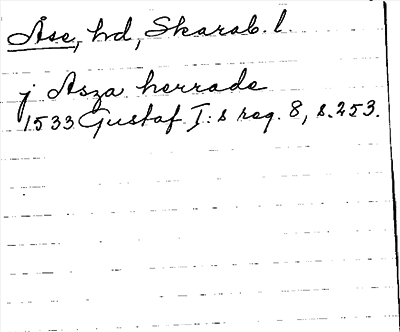 Åse, hd, Skarab. l.
j Asza herrade
1533 Gustaf I:s reg. 8, s. 253.